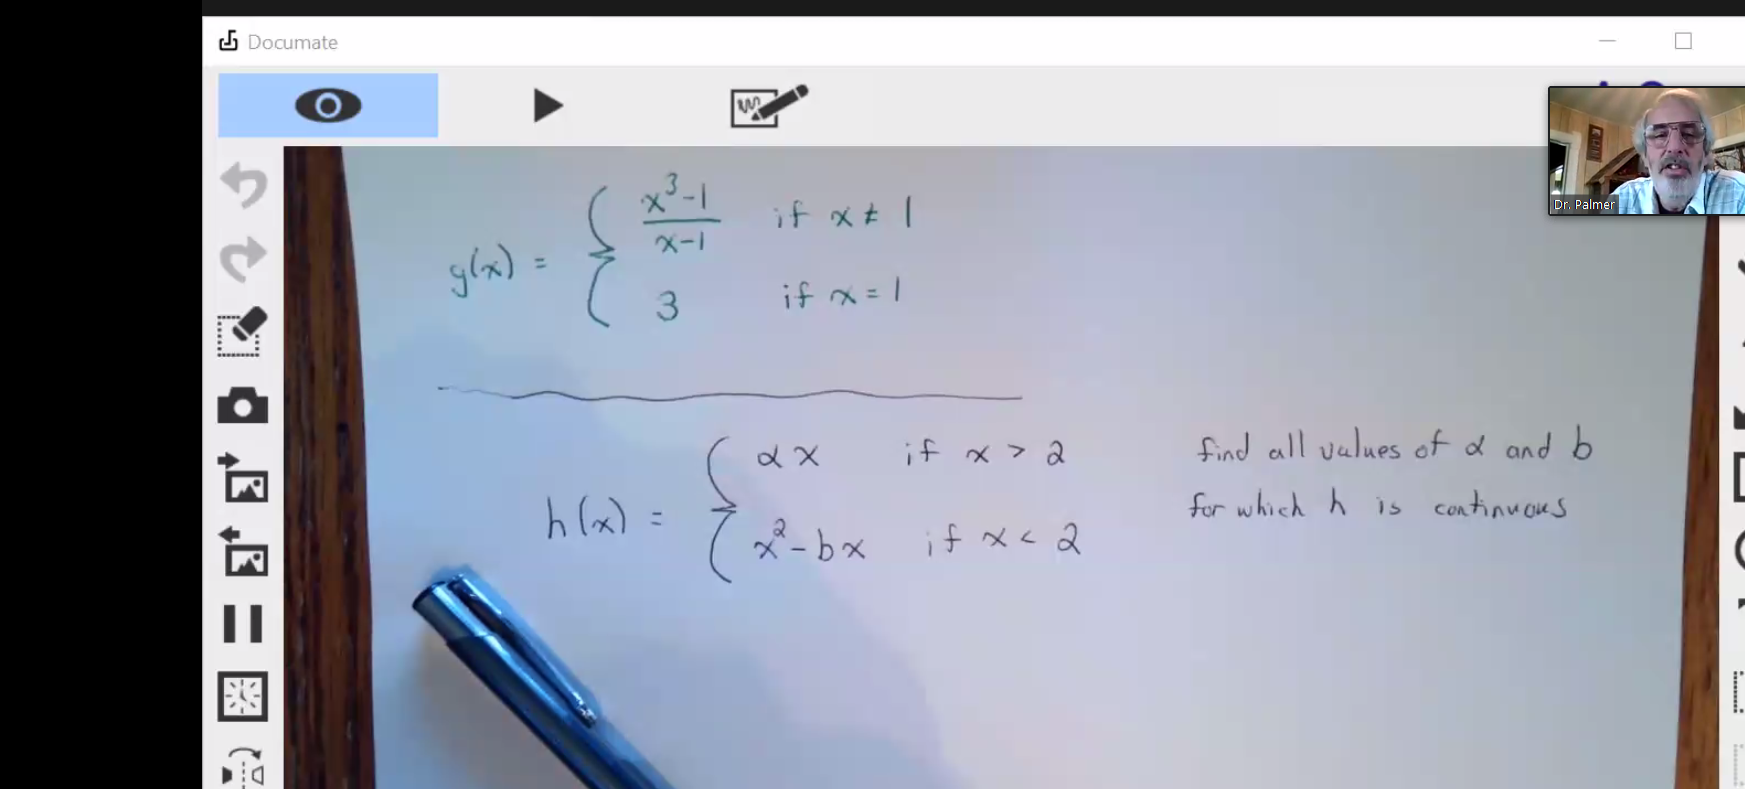 Documate
Dr. Palmer
g(x) = { x³-1 / x-1 if x ≠ 1
3 if x = 1
h(x) = { αx if x > 2
x² - bx if x < 2
find all values of α and b
for which h is continuous